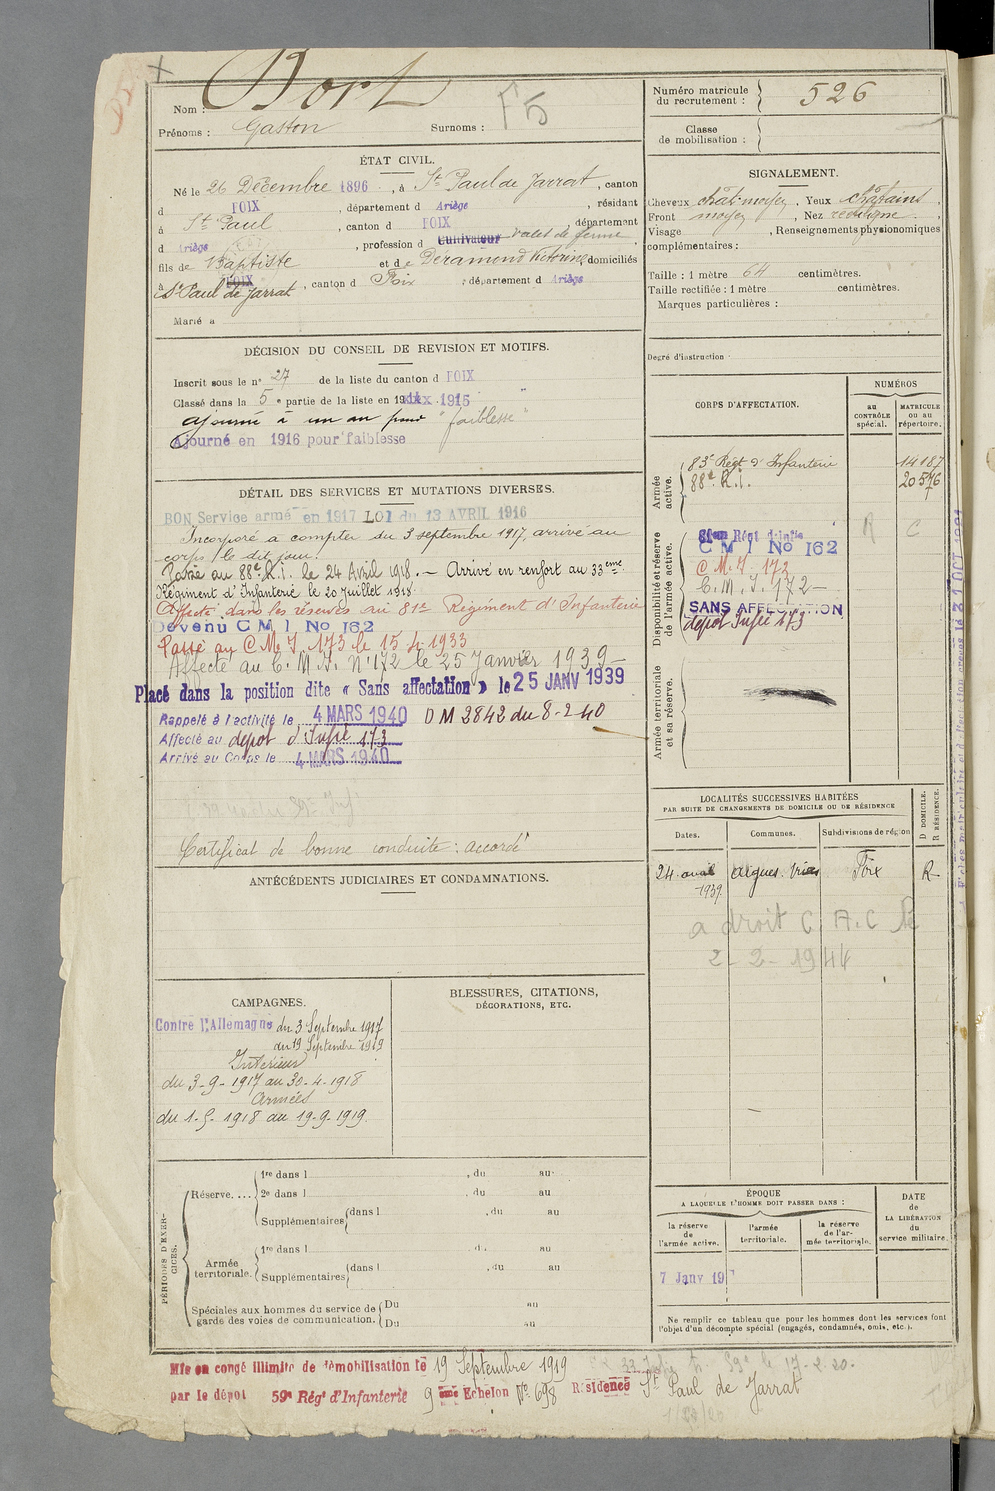 Nom : Bort
Prénoms : Gaston Surnoms :
F5
Numéro matricule du recrutement : 526
Classe de mobilisation :
ÉTAT CIVIL.
Né le 26 Décembre 1896, à St Paul de Jarrat, canton
d FOIX, département d Ariège, résidant
à St Paul, canton d FOIX département
d Ariège, profession d Cultivateur valet de ferme,
fils de Baptiste et de Deramond Victorine domiciliés
à St Paul de Jarrat FOIX, canton d Foix, département d Ariège
Marié à
SIGNALEMENT.
Cheveux chat. moyen, Yeux châtains,
Front moyen, Nez rectiligne,
Visage , Renseignements physionomiques
complémentaires :
Taille : 1 mètre 64 centimètres.
Taille rectifiée : 1 mètre centimètres.
Marques particulières :
Degré d'instruction :
DÉCISION DU CONSEIL DE REVISION ET MOTIFS.
Inscrit sous le n° 27 de la liste du canton d FOIX
Classé dans la 5e partie de la liste en 19 1915
Ajourné à un an pour "faiblesse"
Ajourné en 1916 pour faiblesse
DÉTAIL DES SERVICES ET MUTATIONS DIVERSES.
BON Service armé en 1917 LOI du 13 AVRIL 1916
Incorporé à compter du 3 septembre 1917, arrivé au
corps le dit jour.
Passé au 88e R.I. le 24 Avril 1918. — Arrivé en renfort au 33eme
Régiment d'Infanterie le 20 juillet 1918.
Affecté dans les réserves au 81e Régiment d'Infanterie
Devenu C M I No 162
Passé au C.M.I. 173 le 15 4 1933
Affecté au C.M.I. N° 172 le 25 Janvier 1939 —
Placé dans la position dite « Sans affectation » le 25 JANV 1939
Rappelé à l'activité le 4 MARS 1940 DM 2842 du 8-2-40
Affecté au depot d'Infie 173
Arrivé au Corps le 4 MARS 1940
Certificat de bonne conduite : accordé
CORPS D'AFFECTATION.
NUMÉROS
au CONTRÔLE spécial.
MATRICULE ou au répertoire.
Armée active.
83e Régt d'Infanterie 14187
88e R.I. 20576
Disponibilité et réserve de l'armée active.
81eme Régt d'Infie R C
C M I No 162
C.M.I. 172
C.M.I. 172 —
SANS AFFECTATION
depot Infie 173
Armée territoriale et sa réserve.
LOCALITÉS SUCCESSIVES HABITÉES
PAR SUITE DE CHANGEMENTS DE DOMICILE OU DE RÉSIDENCE
Dates. Communes. Subdivisions de région
D DOMICILE. R RÉSIDENCE.
24 avril 1939 Aigues-Vives Foix R
a droit C.A.C
2-2-1944
ANTÉCÉDENTS JUDICIAIRES ET CONDAMNATIONS.
CAMPAGNES.
Contre l'Allemagne du 3 Septembre 1917
du 19 Septembre 1919
Intérieur
du 3-9-1917 au 30-4-1918
Armées
du 1-5-1918 au 19-9-1919.
BLESSURES, CITATIONS,
DÉCORATIONS, ETC.
PÉRIODES D'EXERCICES.
Réserve.... 1re dans l , du au
2e dans l , du au
Supplémentaires dans l , du au
Armée territoriale. 1re dans l , du au
Supplémentaires dans l , du au
Spéciales aux hommes du service de garde des voies de communication. Du au
Du au
ÉPOQUE
A LAQUELLE L'HOMME DOIT PASSER DANS :
la réserve de l'armée active.
l'armée territoriale.
la réserve de l'armée territoriale.
DATE de LA LIBÉRATION du service militaire.
7 Janv 19
Ne remplir ce tableau que pour les hommes dont les services font
l'objet d'un décompte spécial (engagés, condamnés, omis, etc.).
Mis en congé illimité de démobilisation le 19 Septembre 1919
par le dépôt 59e Rég' d'Infanterie 9 ème Echelon N° 698 Résidence St Paul de Jarrat